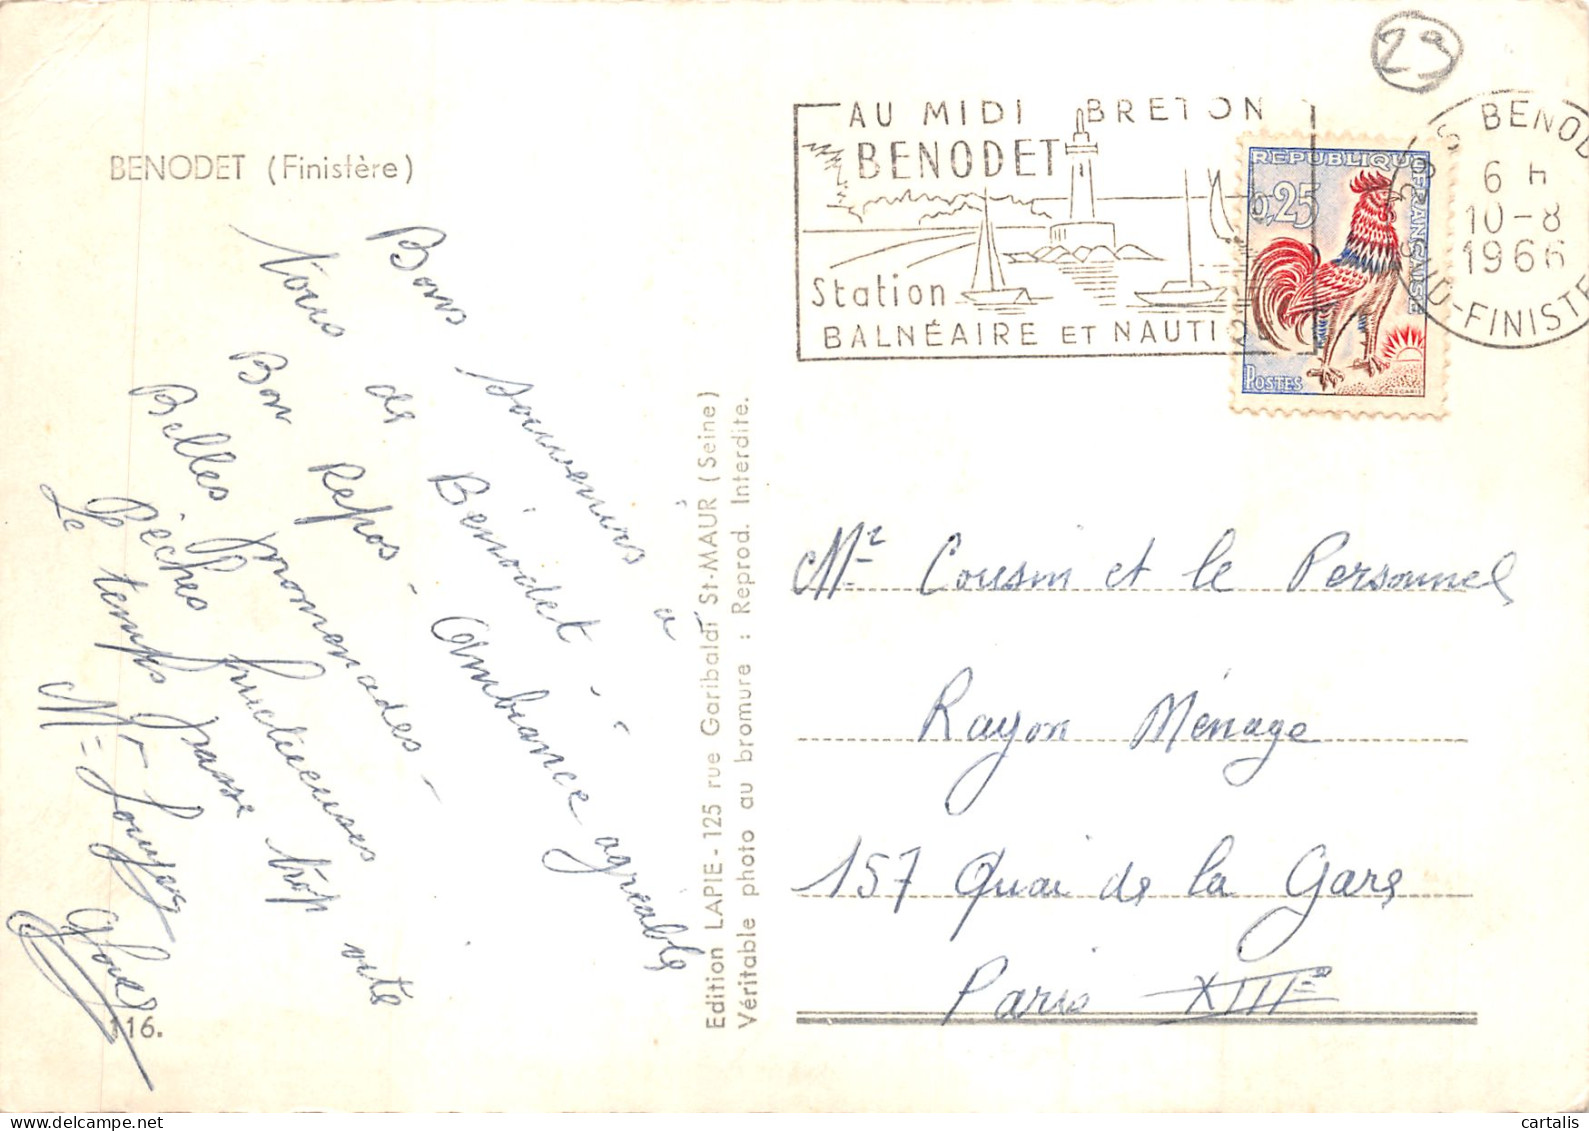 29
BENODET (Finistère)
AU MIDI BRETON
BENODET
Station
BALNÉAIRE ET NAUTIQ
REPUBLIQUE FRANÇAISE
0,25
POSTES
BENOD
6 H
10-8
1966
SUD-FINISTE
Bons souvenirs à
tous de Bénodet -
Bon Repos - Ambiance agréable
Belles promenades -
Pêches fructueuses
Le temps passe trop vite
Mr
116.
Edition LAPIE - 125 rue Garibaldi St-MAUR (Seine)
Véritable photo au bromure : Reprod. Interdite.
Mr Cousin et le Personnel
Rayon Ménage
157 Quai de la Gare
Paris XIIIe
delcampe.net
cartalis